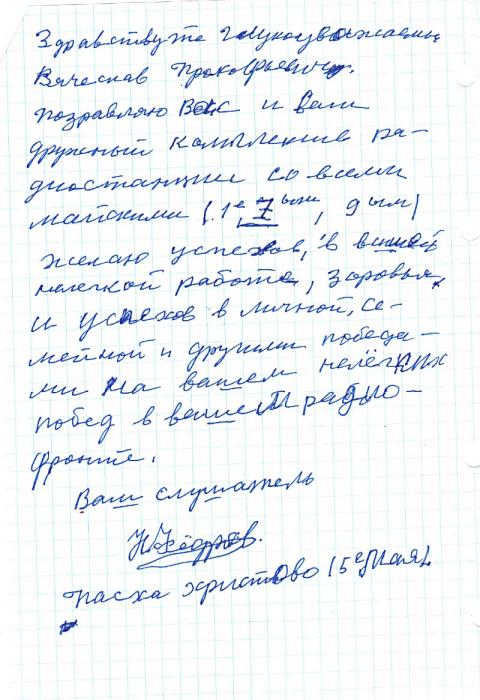 Здравствуте Глукоуважаемы
Вячеслав Прокофьевич,
поздравляю Вас и ваш
дружный коллектив ра-
диостанции со всеми
майскими (1е, 7ыми, 9ым)
желаю успехов, в вашей
нелегкой работе, здоровья,
и успехов в личной, се-
мейной и другими победа-
ми на вашем нелёгких
побед в вашем радио-
фронте.
Ваш слушатель
Н Фёдоров.
Пасха христово (5е Мая).